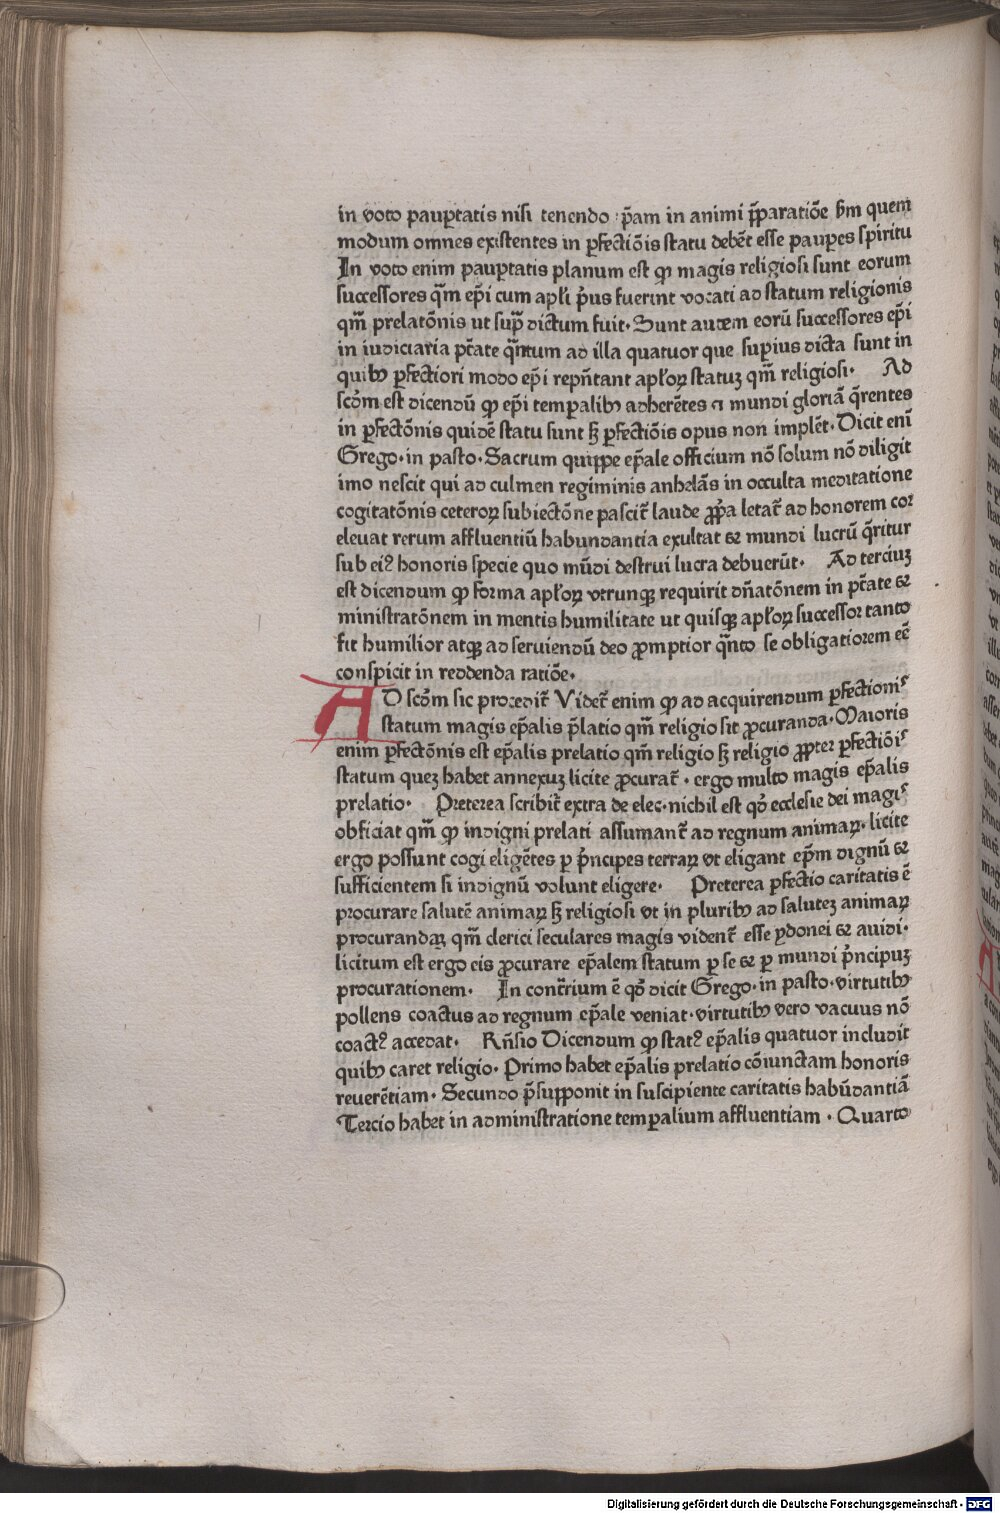 in voto paup̲tatis nisi tenendo p̄am in animi p̄paratiōe s̄m quem
modum omnes existentes in ꝑfectiōis statu debēt esse pauꝑes spiritu
In voto enim pauꝑtatis planum est ꝙ magis religiosi sunt eorum
successores q̄m ep̄i cum apl̄i p̓us fuerint vocati ad statum religionis
qm̄ prelatōnis ut sup̄ dictum fuit. Sunt autem eorū successores ep̄i
in iudiciaria ptāte q̄ntum ad illa quatuor que suꝑius dicta sunt in
quibꝫ ꝑfectiori modo ep̄i rep̄ntant apl̓oꝝ statuꝫ qm̄ religiosi. Ad
scōm est dicendū ꝙ ep̄i temꝑalibꝫ adherētes ⁊ mundi gloriā q̄rentes
in ꝑfectōnis quidē statu sunt sꝫ ꝑfectiōis opus non implēt. Dicit enī
Grego. in pasto. Sacrum quippe ep̄ale officium nō solum nō diligit
imo nescit qui ad culmen regiminis anhelās in occulta meditatione
cogitatōnis ceteroꝝ subiectōne pascit̄ laude ꝓpa letat̄ ad honorem cor
eleuat rerum affluentiū habundantia exultat ⁊ mundi lucrū q̄ritur
sub eiꝰ honoris specie quo mūdi destrui lucra debuerūt. Ad terciuꝫ
est dicendum ꝙ forma apl̓oꝝ vtrunqꝫ requirit dn̄atōnem in ptāte ⁊
ministratōnem in mentis humilitate ut quisqꝫ apl̓oꝝ successor tanto
fit humilior atqꝫ ad seruiendū deo ꝓmptior q̄nto se obligatiorem eē
conspicit in reddenda ratiōe.
AD scōm sic procedit̄ Videt̄ enim ꝙ ad acquirendum ꝑfectionis
statum magis ep̄alis p̄latio qm̄ religio sit ꝓcuranda. Maioris
enim ꝑfectōnis est ep̄alis prelatio qm̄ religio sꝫ religio ꝓpter ꝑfectiōis
statum queꝫ habet annexuꝫ licite ꝓcurat̄. ergo multo magis ep̄alis
prelatio. Preterea scribit̄ extra de elec. nichil est qd̄ ecclesie dei magis
obficiat qm̄ ꝙ indigni prelati assumant̄ ad regnum animaꝝ. licite
ergo possunt cogi eligētes ꝑ p̓ncipes terraꝝ vt eligant ep̄m dignū ⁊
sufficientem si indignū volunt eligere. Preterea ꝑfectio caritatis ē
procurare salutē animaꝝ sꝫ religiosi vt in pluribꝫ ad saluteꝫ animaꝝ
procurandaꝝ qm̄ clerici seculares magis vident̄ esse ydonei ⁊ auidi.
licitum est ergo eis ꝓcurare ep̄alem statum ꝑ se ⁊ ꝑ mundi p̓ncipuꝫ
procurationem. In cont̄rium ē qd̄ dicit Grego. in pasto. virtutibꝫ
pollens coactus ad regnum ep̄ale veniat. virtutibꝫ vero vacuus nō
coactꝰ accedat. Rn̄sio Dicendum ꝙ statꝰ ep̄alis quatuor includit
quibꝫ caret religio. Primo habet ep̄alis prelatio cōiunctam honoris
reuerētiam. Secundo p̄supponit in suscipiente caritatis habūdantiā
Tercio habet in administratione temꝑalium affluentiam. Quarto
Digitalisierung gefördert durch die Deutsche Forschungsgemeinschaft - DFG